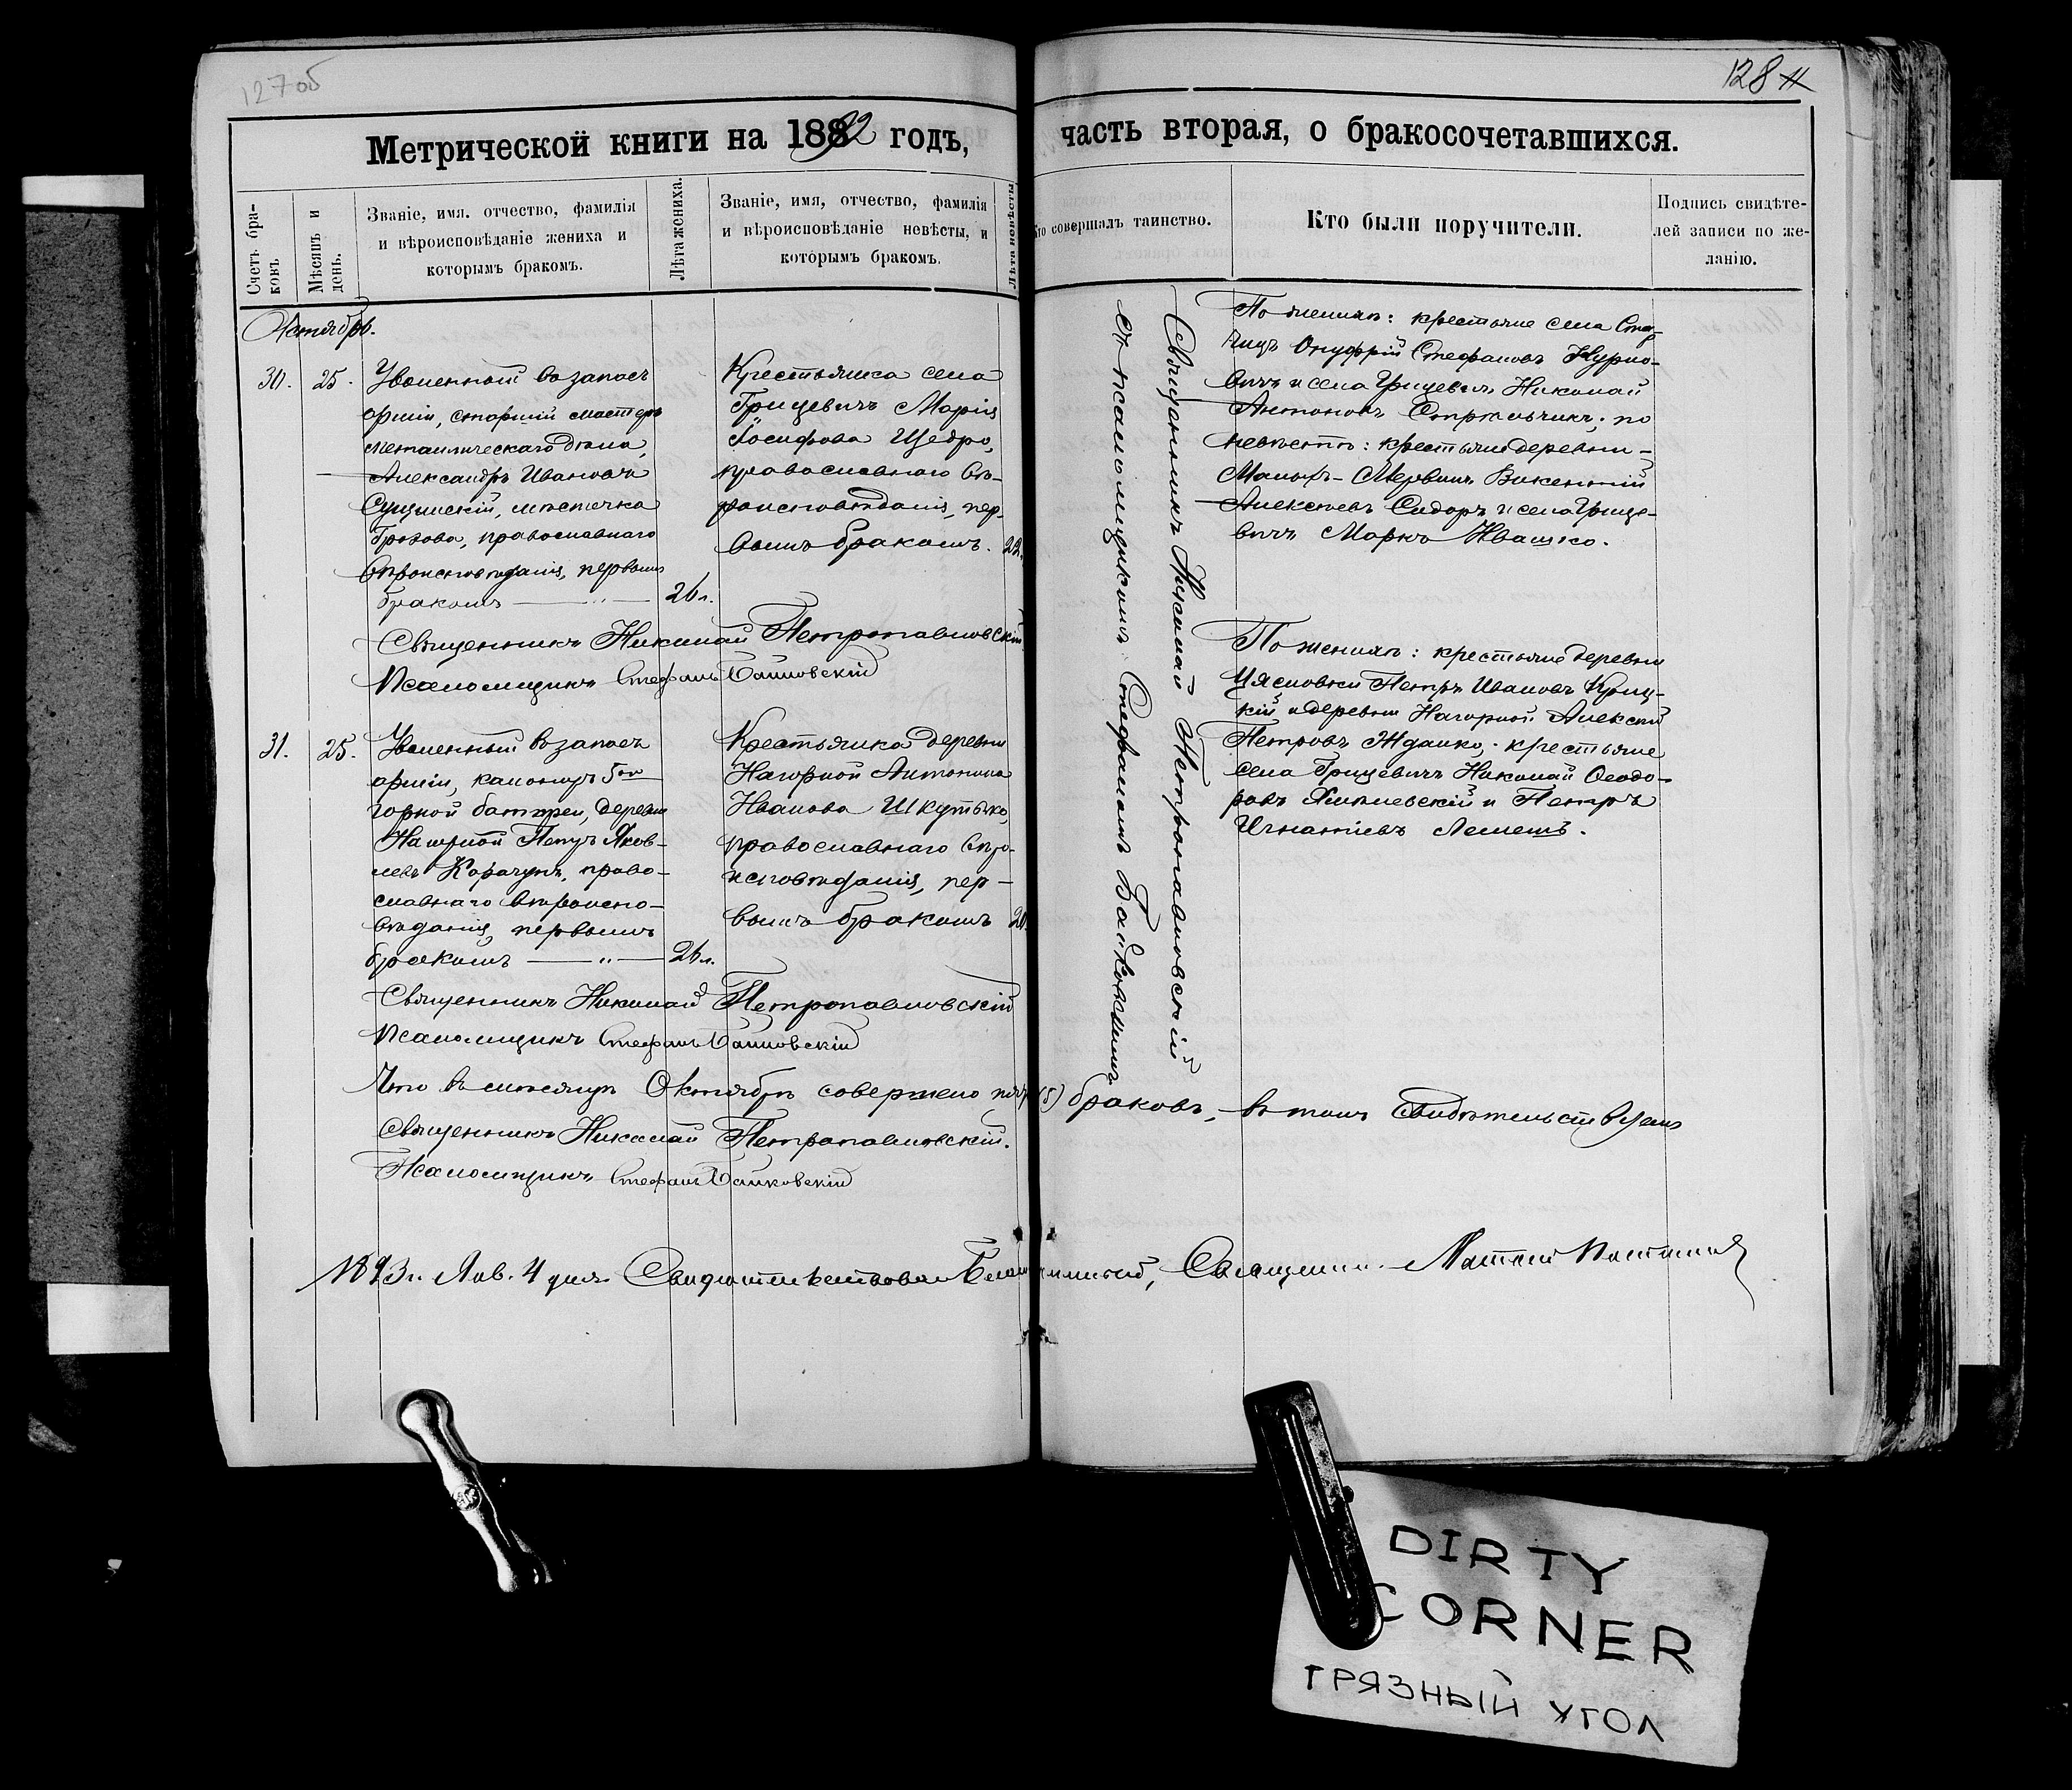 127об
128
Метрической книги на 1892 годъ,
часть вторая, о бракосочетавшихся.
Счетъ бра-
ковъ
Мѣсяцъ и
день.
Званіе, имя. отчество, фамилія
и вѣроисповѣданіе жениха и
которымъ бракомъ.
Лѣта жениха.
Званіе, имя, отчество, фамилія
и вѣроисповѣданіе невѣсты, и
которымъ бракомъ.
Лѣта невѣсты
Кто совершалъ таинство.
Кто были поручители.
Подпись свидѣте-
лей записи по же-
ланію.
Октябрь.
30.
25.
Уволенный въ запасъ
арміи, старшій мастеръ
металлическаго дѣла,
Александръ Ивановъ
Сущинскій, мѣстечка
Грозова, православнаго
вѣроисповѣданія, первымъ
бракомъ — „ —
26 л.
Крестьянка села
Грицевичъ Марія
Іосифова Щедро,
православнаго вѣ-
роисповѣданія, пер-
вымъ бракомъ.
22.
Священникъ Николай Петропавловскій
Псаломщикъ Стефанъ
31.
25.
Уволенный въ запасъ
арміи, канониръ 5ой
горной батареи, деревни
Нагорной Петръ Яков-
левъ Корачунъ, право-
славнаго вѣроиспо-
вѣданія, первымъ
бракомъ — „ —
26 л.
Крестьянка деревни
Нагорной Антонина
Иванова Шкутько,
православнаго вѣро-
исповѣданія, пер-
вымъ бракомъ
20.
Священникъ Николай Петропавловскій
Псаломщикъ Стефанъ
Что въ мѣсяцѣ Октябрѣ совершено пять (5) браковъ, въ томъ свидѣтельствуемъ
Священникъ Николай Петропавловскій.
Псаломщикъ Стефанъ
1893 г. Янв. 4 дня. Свидѣтельствовалъ Священникъ
Священникъ Николай Петропавловскій
съ псаломщикомъ Стефаномъ
По женихѣ: крестьяне села Ста-
рицъ Онуфрій Стефановъ Курло-
вичъ и села Грицевичъ Николай
Антоновъ Стрѣльчикъ; по
невѣстѣ: крестьяне деревни
Малыхъ-Мервинъ Викентій
Алексѣевъ Сидоръ и села Грице-
вичъ Маркъ Ивашко.
По женихѣ: крестьяне деревни
Петръ Ивановъ Криц-
кій и деревни Нагорной Алексѣй
Петровъ Жданко; крестьяне
села Грицевичъ Николай Ѳеодо-
ровъ и Петръ
Игнатіевъ Лемешъ.
DIRTY
CORNER
ГРЯЗНЫЙ УГОЛ